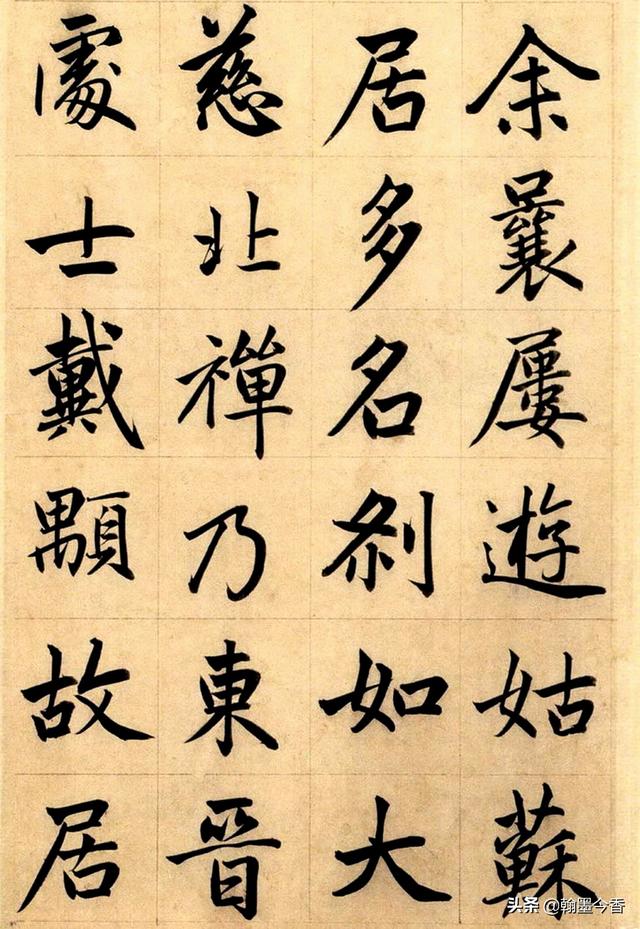 余曩屢遊姑蘇
居多名刹如大
慈北禪乃東晉
處士戴顒故居
头条 @翰墨今香